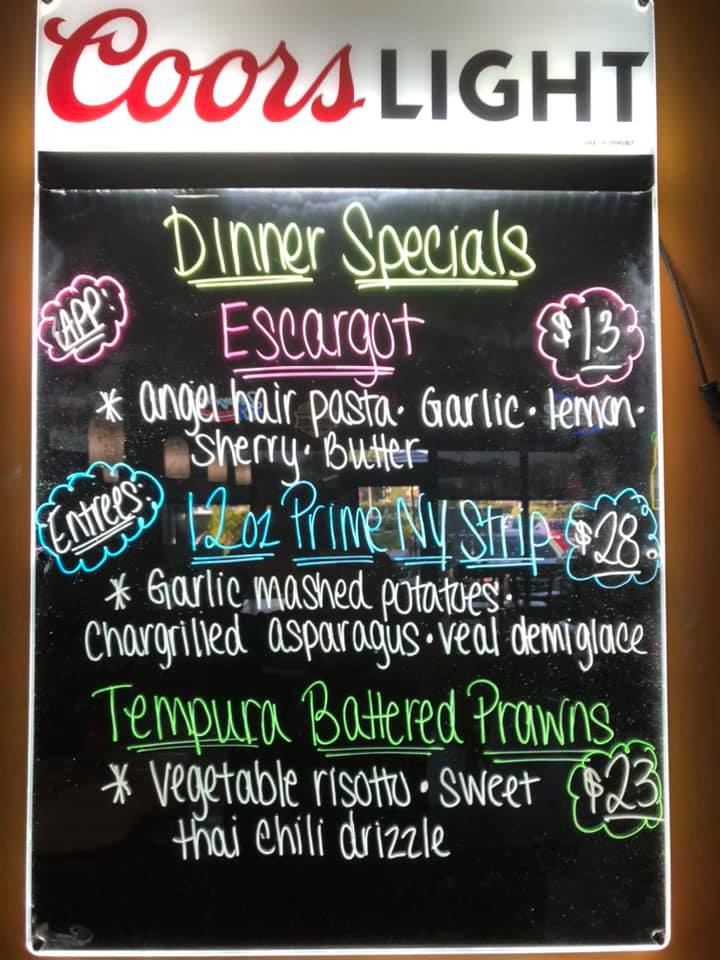 Coors LIGHT
Dinner Specials
APP:
Escargot
$13
* angel hair pasta · Garlic · lemon ·
Sherry · Butter
Entrees:
12oz Prime NY Strip
$28
* Garlic mashed potatoes ·
Chargrilled asparagus · veal demiglace
Tempura Battered Prawns
* Vegetable risotto · sweet
$23
thai chili drizzle